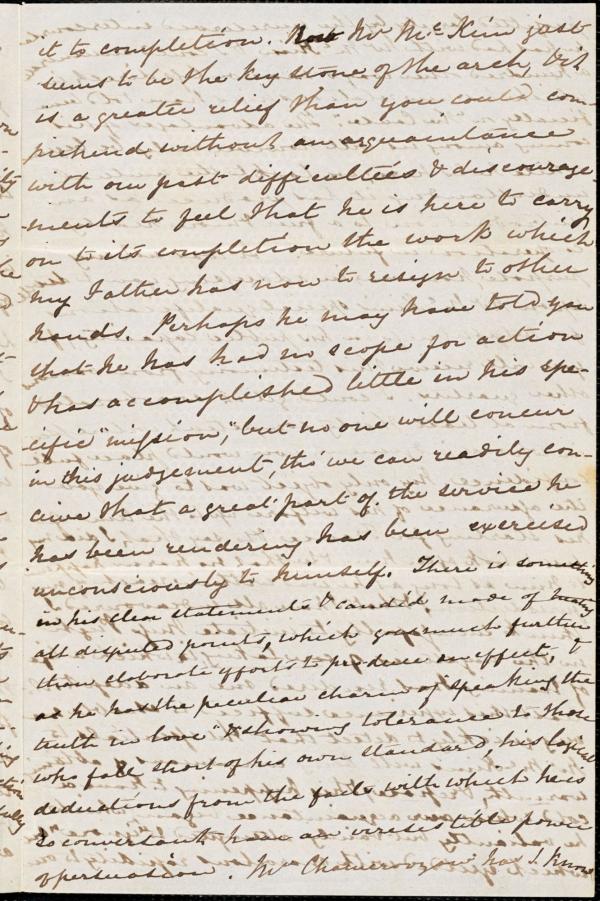 it to completion. Mr Mc Kim just
seems to be the key stone of the arch, & it
is a greater relief than you could com-
prehend without an acquaintance
with our past difficulties & discourage-
ments to feel that he is here to carry
on to its completion the work which
my Father has now to resign to other
hands. Perhaps he may have told you
that he has had no scope for action
& has accomplished little in his spe-
cific "mission," but no one will concur
in this judgement, tho' we can readily con-
ceive that a great part of the service he
has been rendering has been exercised
unconsciously to himself. There is something
in his clear statements & candid mode of
all disputed points, which goes much further
than elaborate efforts to produce an effect, &
as he has the peculiar charm of "speaking the
truth in love" & showing tolerance to those
who fall short of his own standard, his logical
deductions from the facts with which he is
so conversant have an irresistible power
of persuasion. Mr Chamerovzow has I know